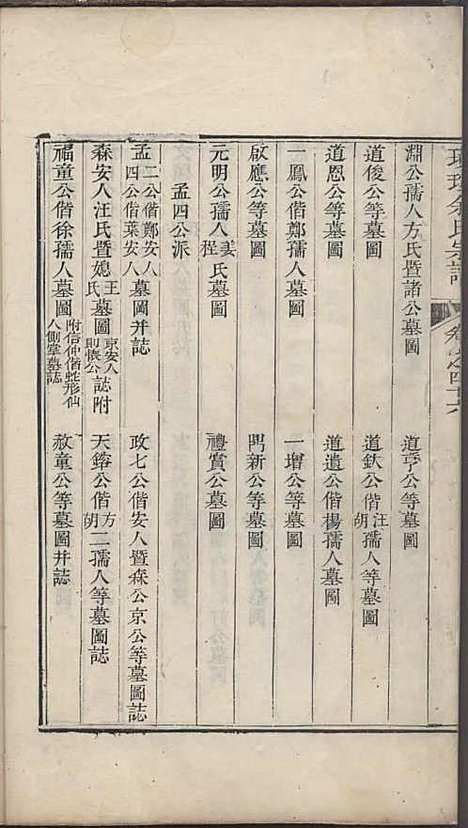 余氏宗譜 卷之四十六
淵公孺人方氏暨諸公墓圖 道亨公等墓圖
道俊公等墓圖 道欽公偕汪胡孺人等墓圖
道恩公等墓圖 道遺公偕楊孺人墓圖
一鳳公偕鄭孺人墓圖 一增公等墓圖
啟應公等墓圖 新公等墓圖
元明公孺人姜程氏墓圖 禮賓公墓圖
孟四公派
孟二公偕鄭安人四公偕葉安人墓圖并誌 政七公偕安人暨森公京公等墓圖誌
森安人汪氏暨媳王氏墓圖京安人即懷公誌附 天鎔公偕方胡二孺人等墓圖誌
福童公偕徐孺人墓圖附信仲偕蛇形仙人側掌墓誌 赦童公等墓圖并誌